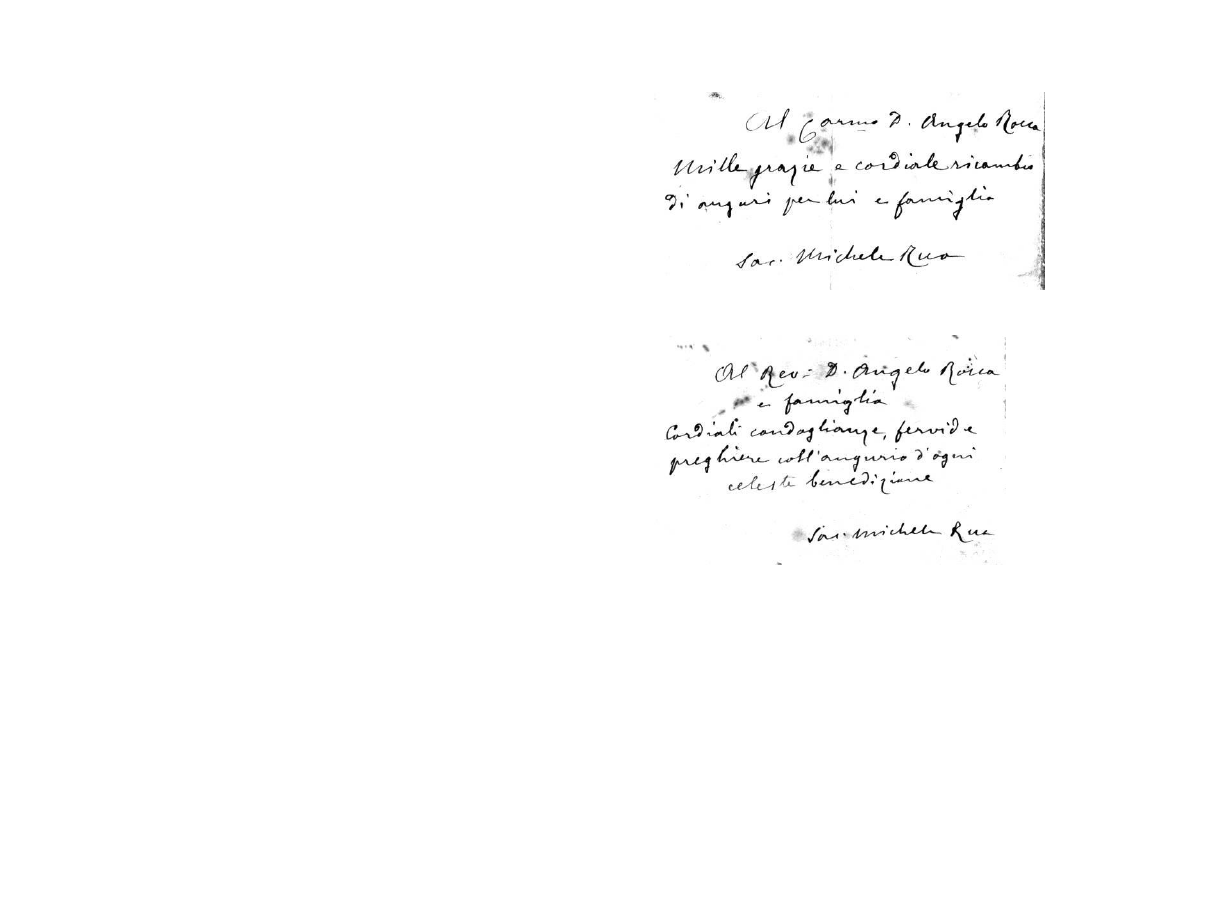 Al Carmo D. Angelo Rocca
Mille grazie e cordiale ricambio
di auguri per lui e famiglia
Sac. Michele Rua
Al Rev: D. Angelo Rocca
e famiglia
Cordiali condoglianze, fervide
preghiere coll'augurio d'ogni
celeste benedizione
Sac. Michele Rua